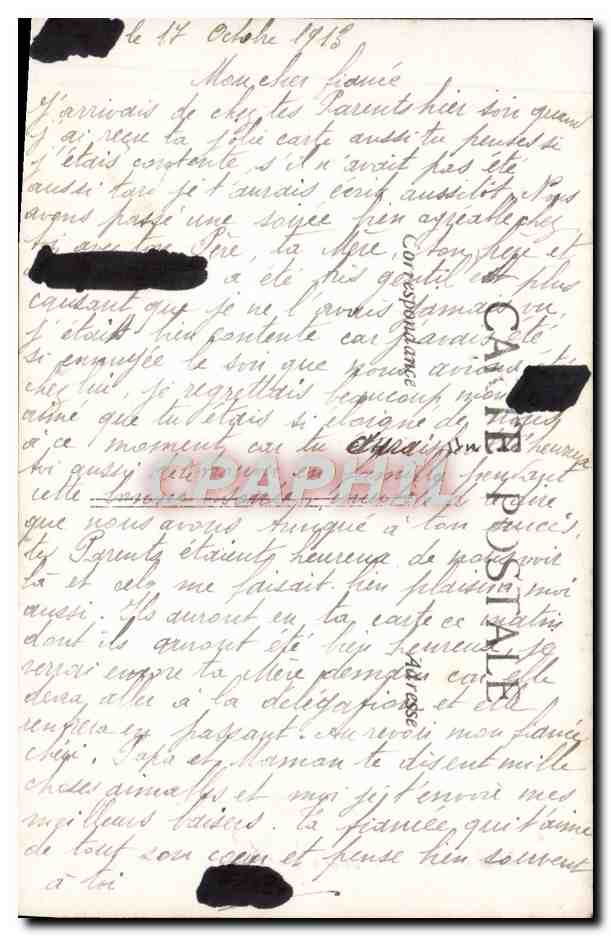 le 17 Octobre 1913
Mon cher fiancé
J'arrivais de chez tes Parents hier soir quand
j'ai reçu ta jolie carte aussi tu penses si
j'étais contente, s'il n'avait pas été
aussi tard je t'aurais écrit aussitôt. Nous
avons passé une soirée bien agréable chez
toi avec ton Père, ta Mère, ton frère et
a été très gentil est plus
causant que je ne l'avais jamais vu,
j'étais bien contente car j'avais été
si ennuyée le soir que nous avions été
chez lui, je regrettais beaucoup mon
aimé que tu étais si éloigné de nous
à ce moment car tu aurais bien heureux
toi aussi pendant
cette bonne
que nous avons trinqué à ton succès,
tes Parents étaient heureux de nous voir
là et cela me faisait bien plaisir, moi
aussi. Ils auront eu ta carte ce matin
dont ils auront été bien heureux, je
verrai encore ta Mère demain car elle
devra aller à la délégation et elle
rentrera en passant. Au revoir mon fiancé
chéri. Papa et Maman te disent mille
choses aimables et moi je t'envoie mes
meilleurs baisers. Ta fiancée qui t'aime
de tout son cœur et pense bien souvent
à toi
CARTE POSTALE
Correspondance
Adresse
CPAPHIL